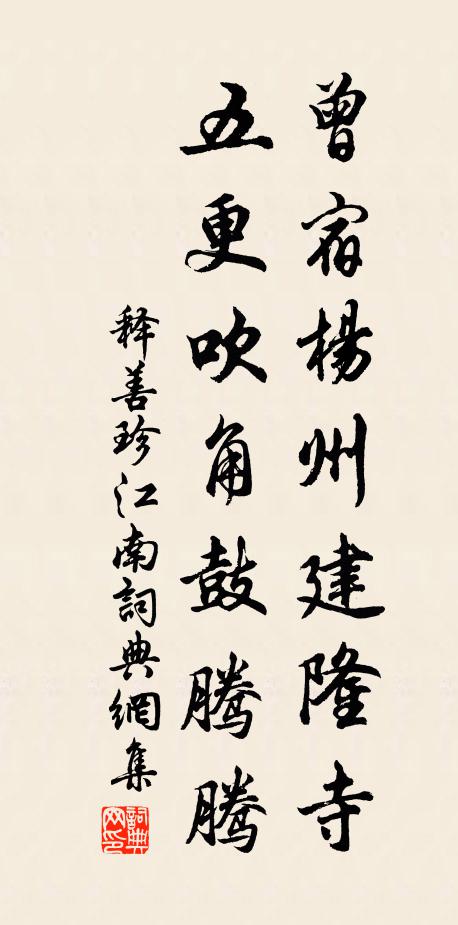 曾宿楊州建隆寺
五更吹角鼓腾腾
释善珍江南詞典網集
詞典網印